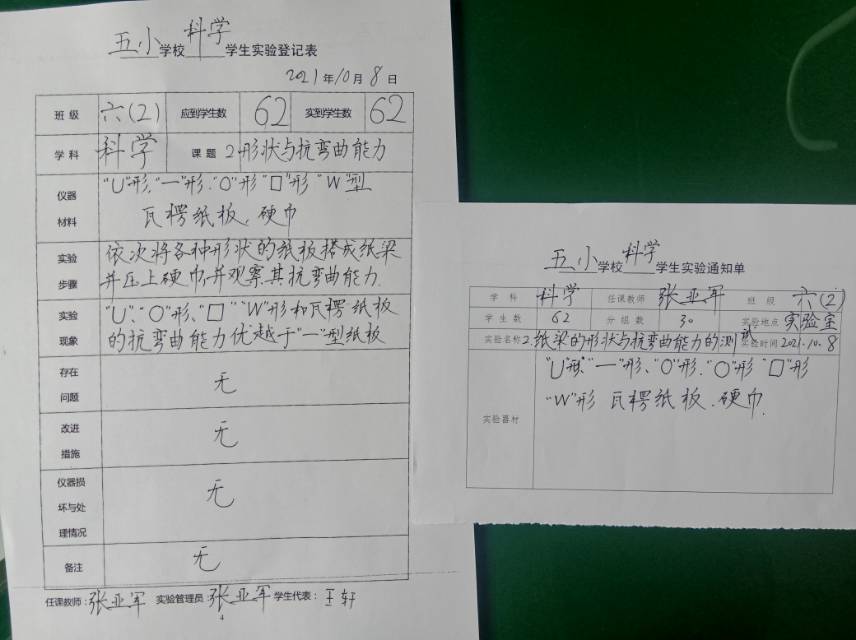 五小学校科学学生实验登记表
2021年10月8日
班级 六(2) 应到学生数 62 实到学生数 62
学科 科学 课题 2.形状与抗弯曲能力
仪器材料 "U"形、"一"形、"O"形"口"形"W"型
瓦楞纸板、硬巾
实验步骤 依次将各种形状的纸板搭成纸梁
并压上硬巾,并观察其抗弯曲能力.
实验现象 "U"、"O"形、"口""W"形和瓦楞纸板
的抗弯曲能力优越于"一"型纸板
存在问题 无
改进措施 无
仪器损坏与处理情况 无
备注 无
任课教师:张亚军 实验管理员:张亚军 学生代表:王轩
4
五小学校科学学生实验通知单
学科 科学 任课教师 张亚军 班级 六(2)
学生数 62 分组数 30 实验地点 实验室
实验名称 2.纸梁的形状与抗弯曲能力的测试 实验时间 2021.10.8
实验器材 "U"形"一"形、"O"形."O"形"口"形
"W"形 瓦楞纸板.硬巾.